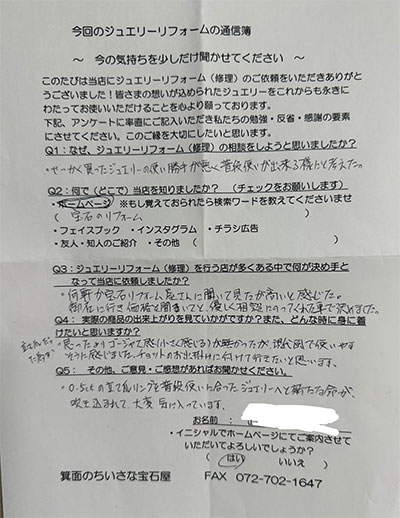 今回のジュエリーリフォームの通信簿
～ 今の気持ちを少しだけ聞かせてください ～
このたびは当店にジュエリーリフォーム（修理）のご依頼をいただきありが
とうございました！皆さまの想いが込められたジュエリーをこれからも永きに
わたってお使いいただけることを心より願っております。
下記、アンケートに率直にご記入いただき私たちの勉強・反省・感謝の要素
にさせてください。このご縁を大切にしたいと思います。
Q1：なぜ、ジュエリーリフォーム（修理）の相談をしようと思いましたか？
・せっかく買ったジュエリーの使い勝手が悪く普段使いが出来る様にと考えた。
Q2：何で（どこで）当店を知りましたか？ （チェックをお願いします）
・ホームページ ※もし覚えておられたら検索ワードを教えてくださいませ
（ 宝石のリフォーム ）
・フェイスブック ・インスタグラム ・チラシ広告
・友人・知人のご紹介 ・その他（ ）
Q3：ジュエリーリフォーム（修理）を行う店が多くある中で何が決め手と
なって当店に依頼しましたか？
・何軒か宝石リフォーム屋さんに聞いて見たが高いと感じた。
御店に行き価格を聞いて、優しく相談にのってくれた事で決めました。
Q4：実際の商品の出来上がりを見ていかがですか？また、どんな時に身に着
けたいと思いますか？
・思ったよりゴージャスで感じ（小さく感じる）が無かったが、現代風で使いやす
そうに感じました。チョットのお出掛けに付けて行きたいと思います。
Q5： その他、ご意見・ご感想があればお聞かせください。
・0.5ctの立て爪リングを普段使いに合ったジュエリーへと新たな命が、
吹き込まれて、大変気に入っています。
お名前：
・イニシャルでホームページにてご案内させて
いただいてよろしいでしょうか？
（ はい いいえ ）
箕面のちいさな宝石屋 FAX 072-702-1647